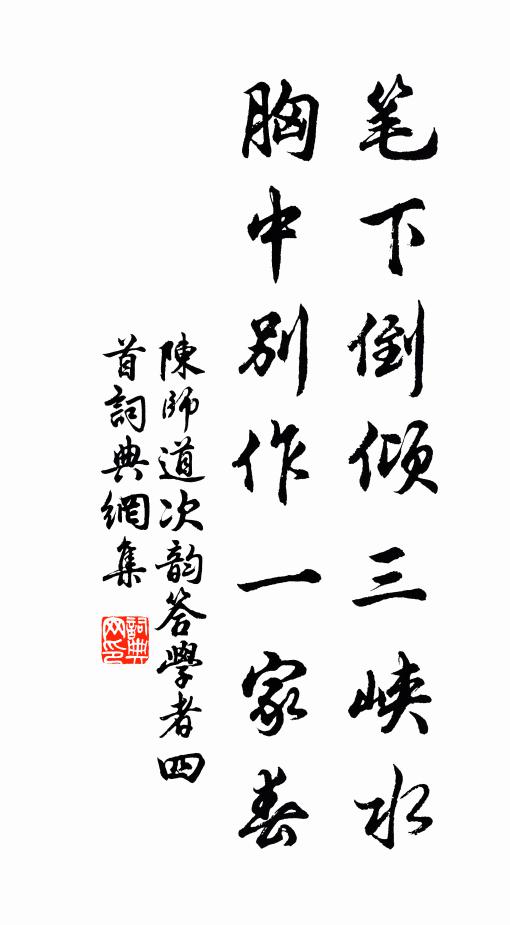 笔下倒倾三峡水
胸中别作一家春
陳師道次韵答學者四
首詞典網集
詞典
网印